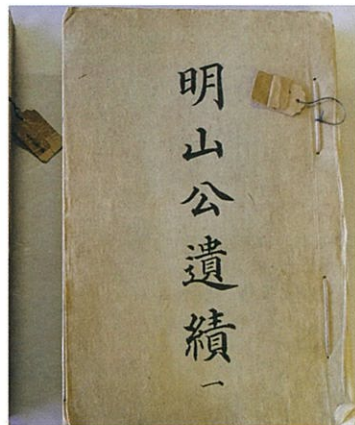 明山公遺績 一